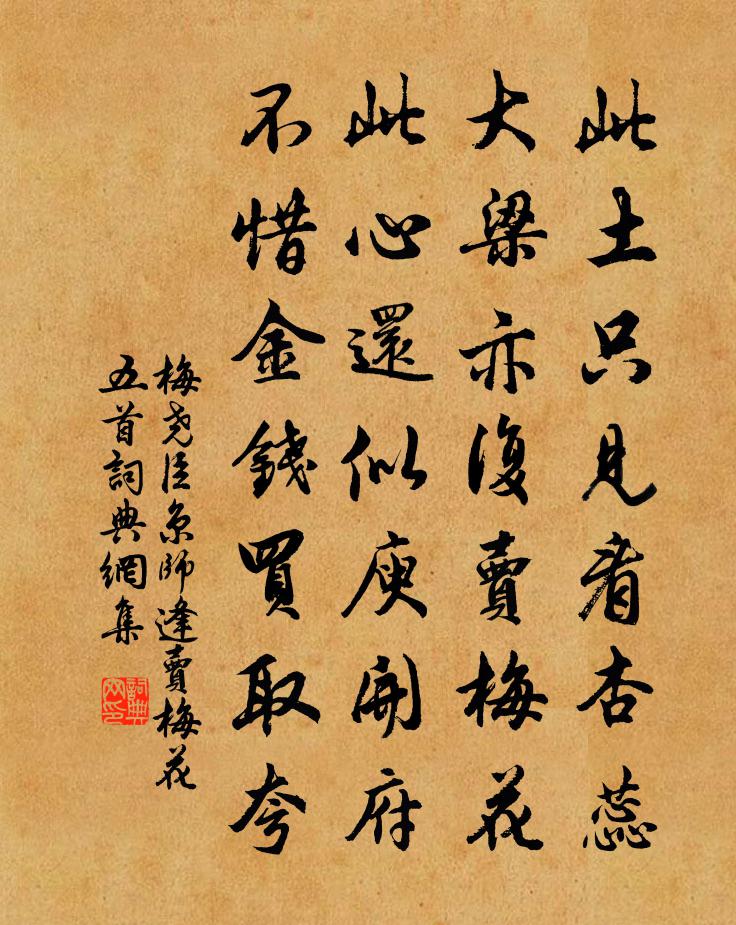 此土只見看杏蕊
大梁亦復賣梅花
此心還似庾開府
不惜金錢買取夸
梅堯臣京師逢賣梅花
五首詞典網集
詞典网印